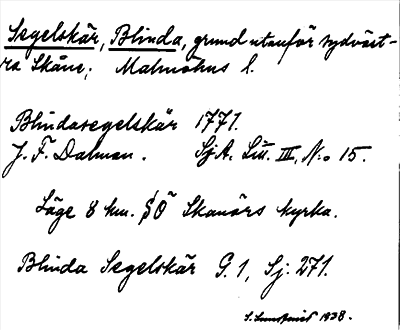 Segelskär, Blinda, grund utanför sydväst-
ra Skåne; Malmöhus l.
Blindasegelskär 1771.
J. F. Dalman. SjA. Litt. III, N:o 15.
Läge 8 km. SO Skanörs kyrka.
Blinda Segelskär G. 1, Sj. 271.
1938.